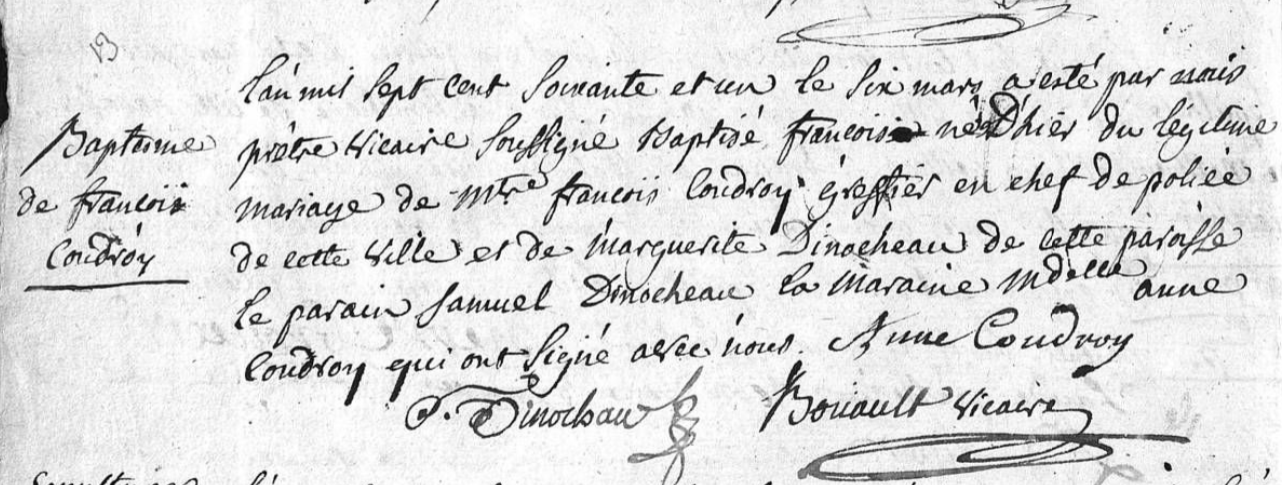 13
L'an mil sept cent soixante et un le six mars a esté par nous
Baptesme
prétre vicaire soussigné Baptisé françois né D'hier du légitime
de françois
mariage de Mtre françois Coudroy greffier en chef de police
Coudroy
de cette ville et de Marguerite Dinocheau de cette paroisse
le parain Samuel Dinocheau la maraine Mdelle anne
Coudroy qui ont signé avec nous. Anne Coudroy
S. Dinocheau Bouault vicaire